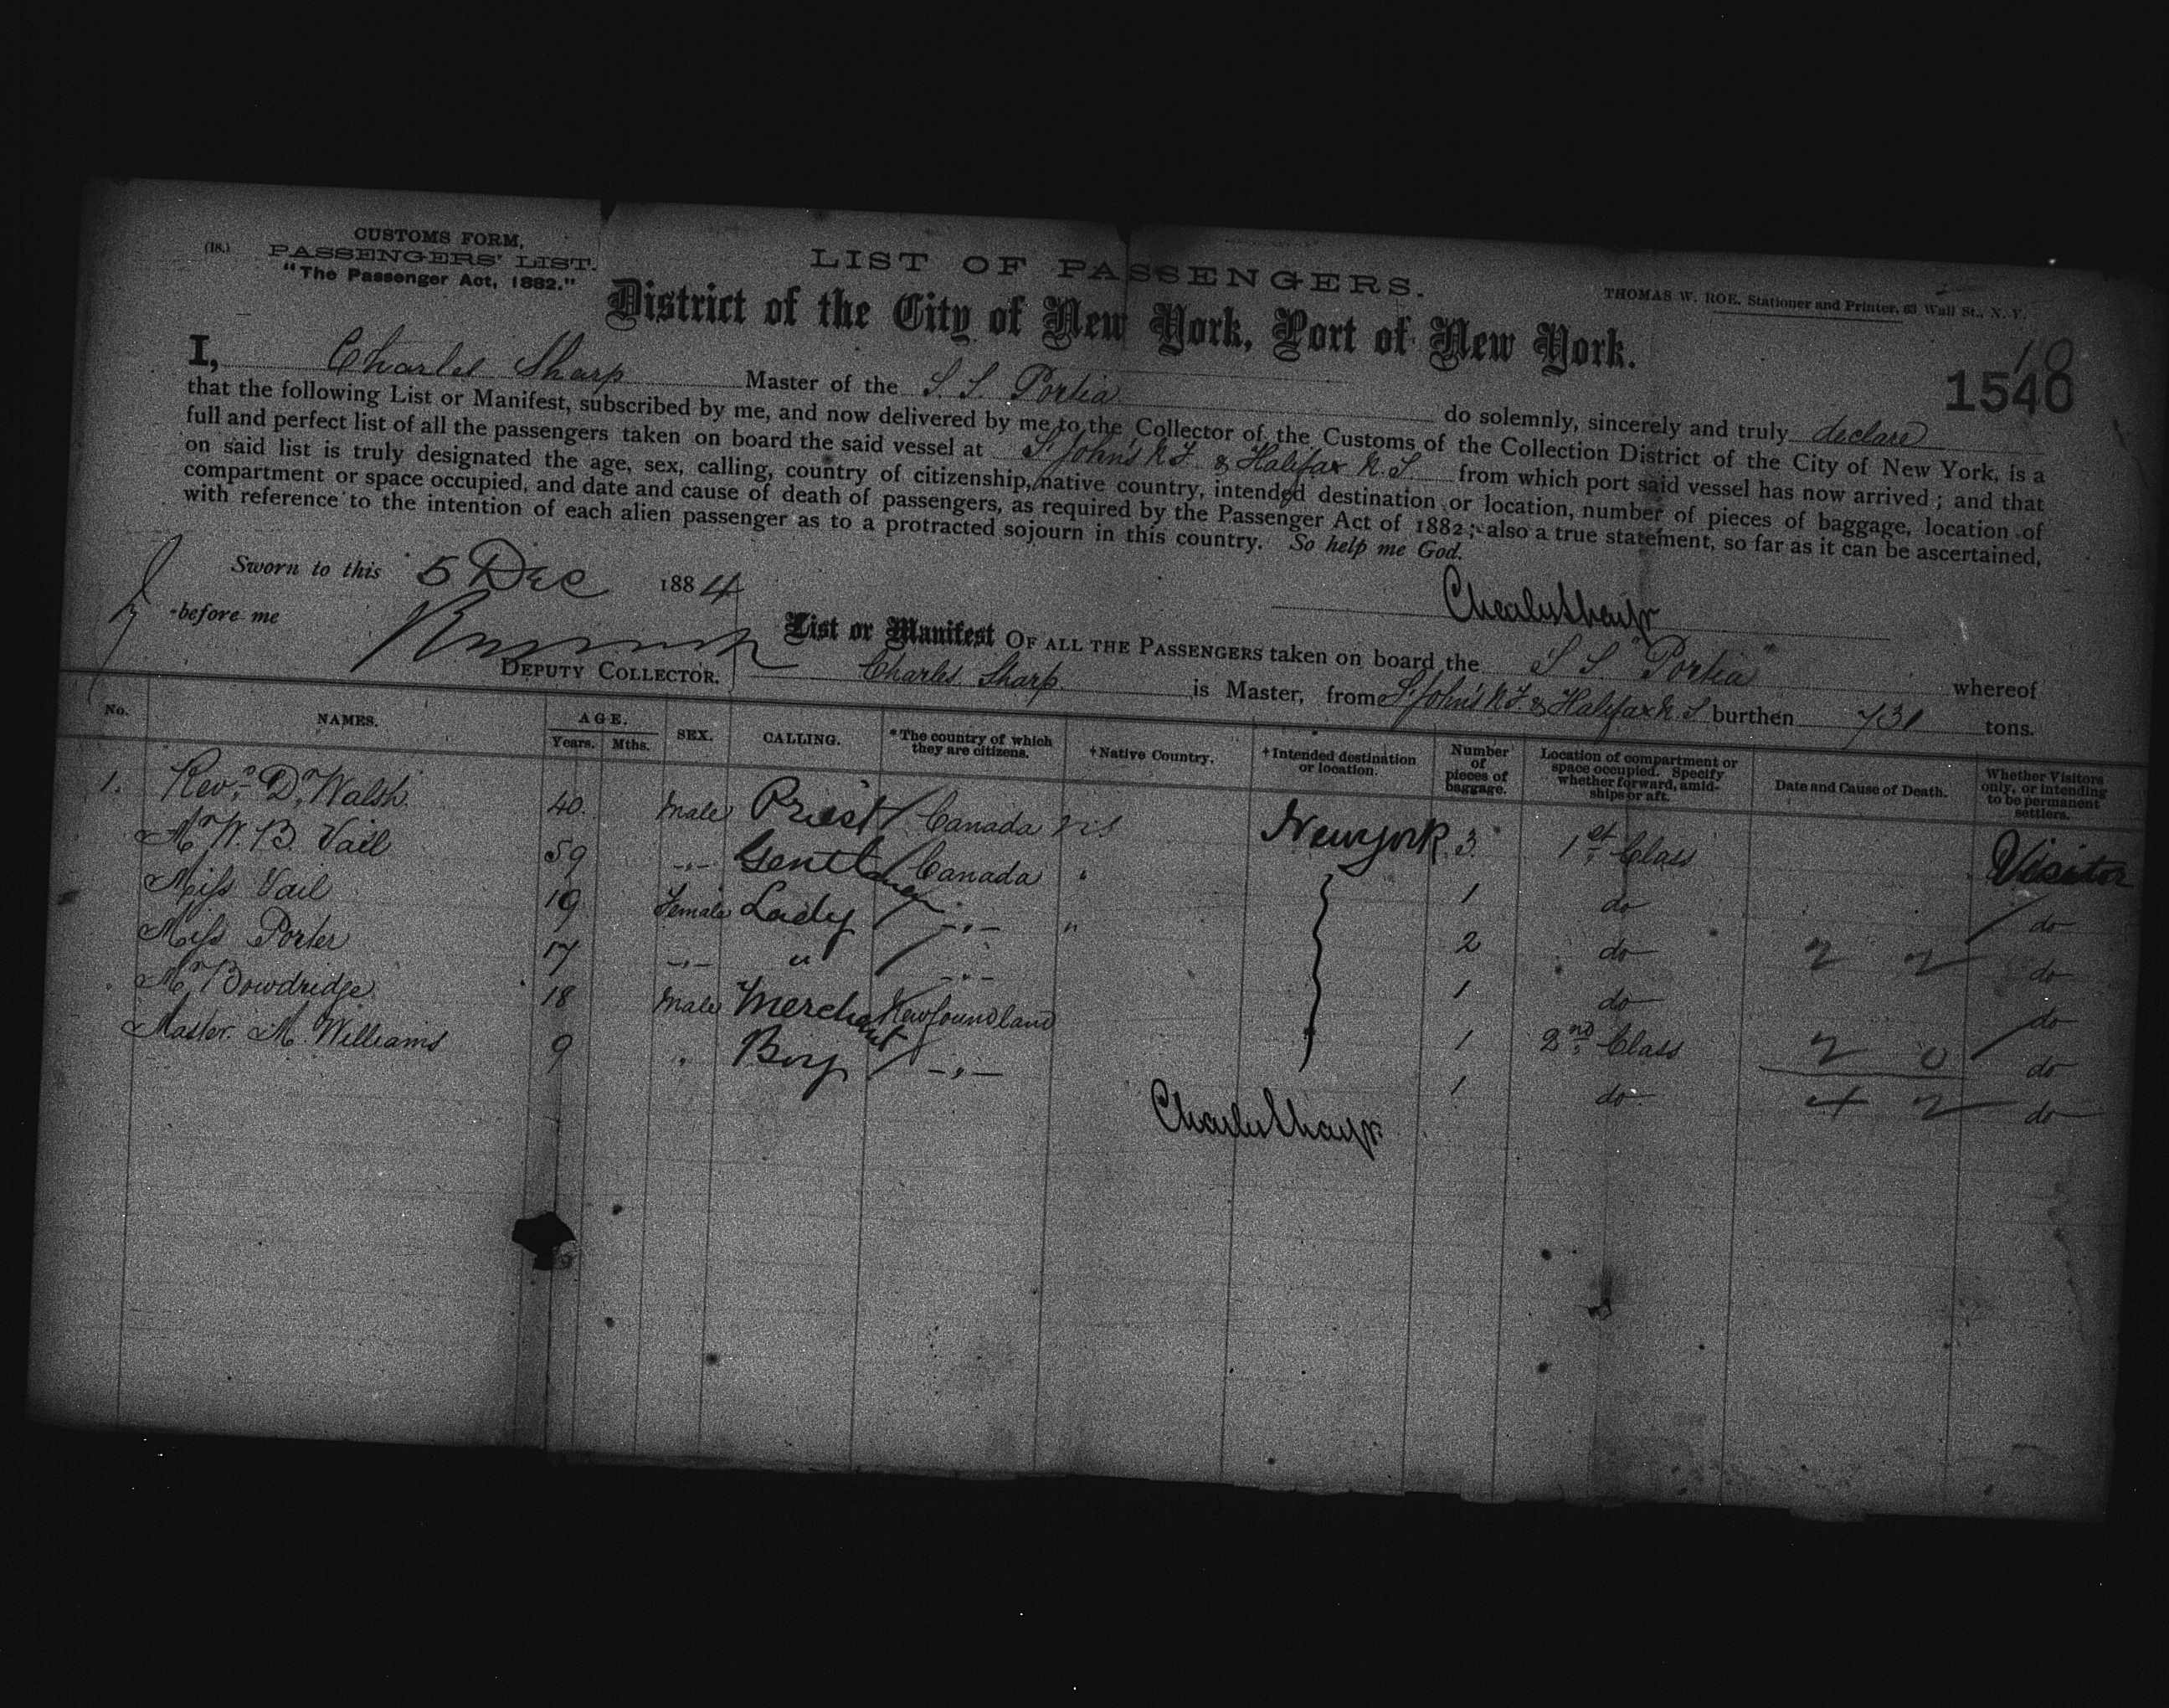 (18.) CUSTOMS FORM,
PASSENGERS' LIST.
"The Passenger Act, 1882."
LIST OF PASSENGERS.
THOMAS W. ROE, Stationer and Printer, 63 Wall St., N. Y.
District of the City of New York, Port of New York.
18
1540
I, Charles Sharp Master of the S. S. Portia do solemnly, sincerely and truly declare
that the following List or Manifest, subscribed by me, and now delivered by me to the Collector of the Customs of the Collection District of the City of New York, is a
full and perfect list of all the passengers taken on board the said vessel at St John's N.F. & Halifax N.S. from which port said vessel has now arrived; and that
on said list is truly designated the age, sex, calling, country of citizenship, native country, intended destination or location, number of pieces of baggage, location of
compartment or space occupied, and date and cause of death of passengers, as required by the Passenger Act of 1882; also a true statement, so far as it can be ascertained,
with reference to the intention of each alien passenger as to a protracted sojourn in this country. So help me God.
Sworn to this 5 Dec 1884
Charles Sharp
before me
DEPUTY COLLECTOR.
List or Manifest OF ALL THE PASSENGERS taken on board the S S "Portia" whereof
Charles Sharp is Master, from St John's N.F. & Halifax N.S burthen 731 tons.
No. NAMES. AGE. Years. Mths. SEX. CALLING. *The country of which they are citizens. †Native Country. †Intended destination or location. Number of pieces of baggage. Location of compartment or space occupied. Specify whether forward, amidships or aft. Date and Cause of Death. Whether Visitors only, or intending to be permanent settlers.
1. Revd Dr Walsh 40 Male Priest Canada NS New York 3 1st Class Visitor
Mr W. B. Vail 59 -"- Gentleman Canada " 1 do do
Miss Vail 19 Female Lady -"- " 2 do 2 2 do
Miss Porter 17 -"- " -"- 1 do do
Mr Bowdridge 18 Male Merchant Newfoundland 1 2nd Class 2 0 do
Master M. Williams 9 " Boy -"- 1 do 4 2 do
Charles Sharp